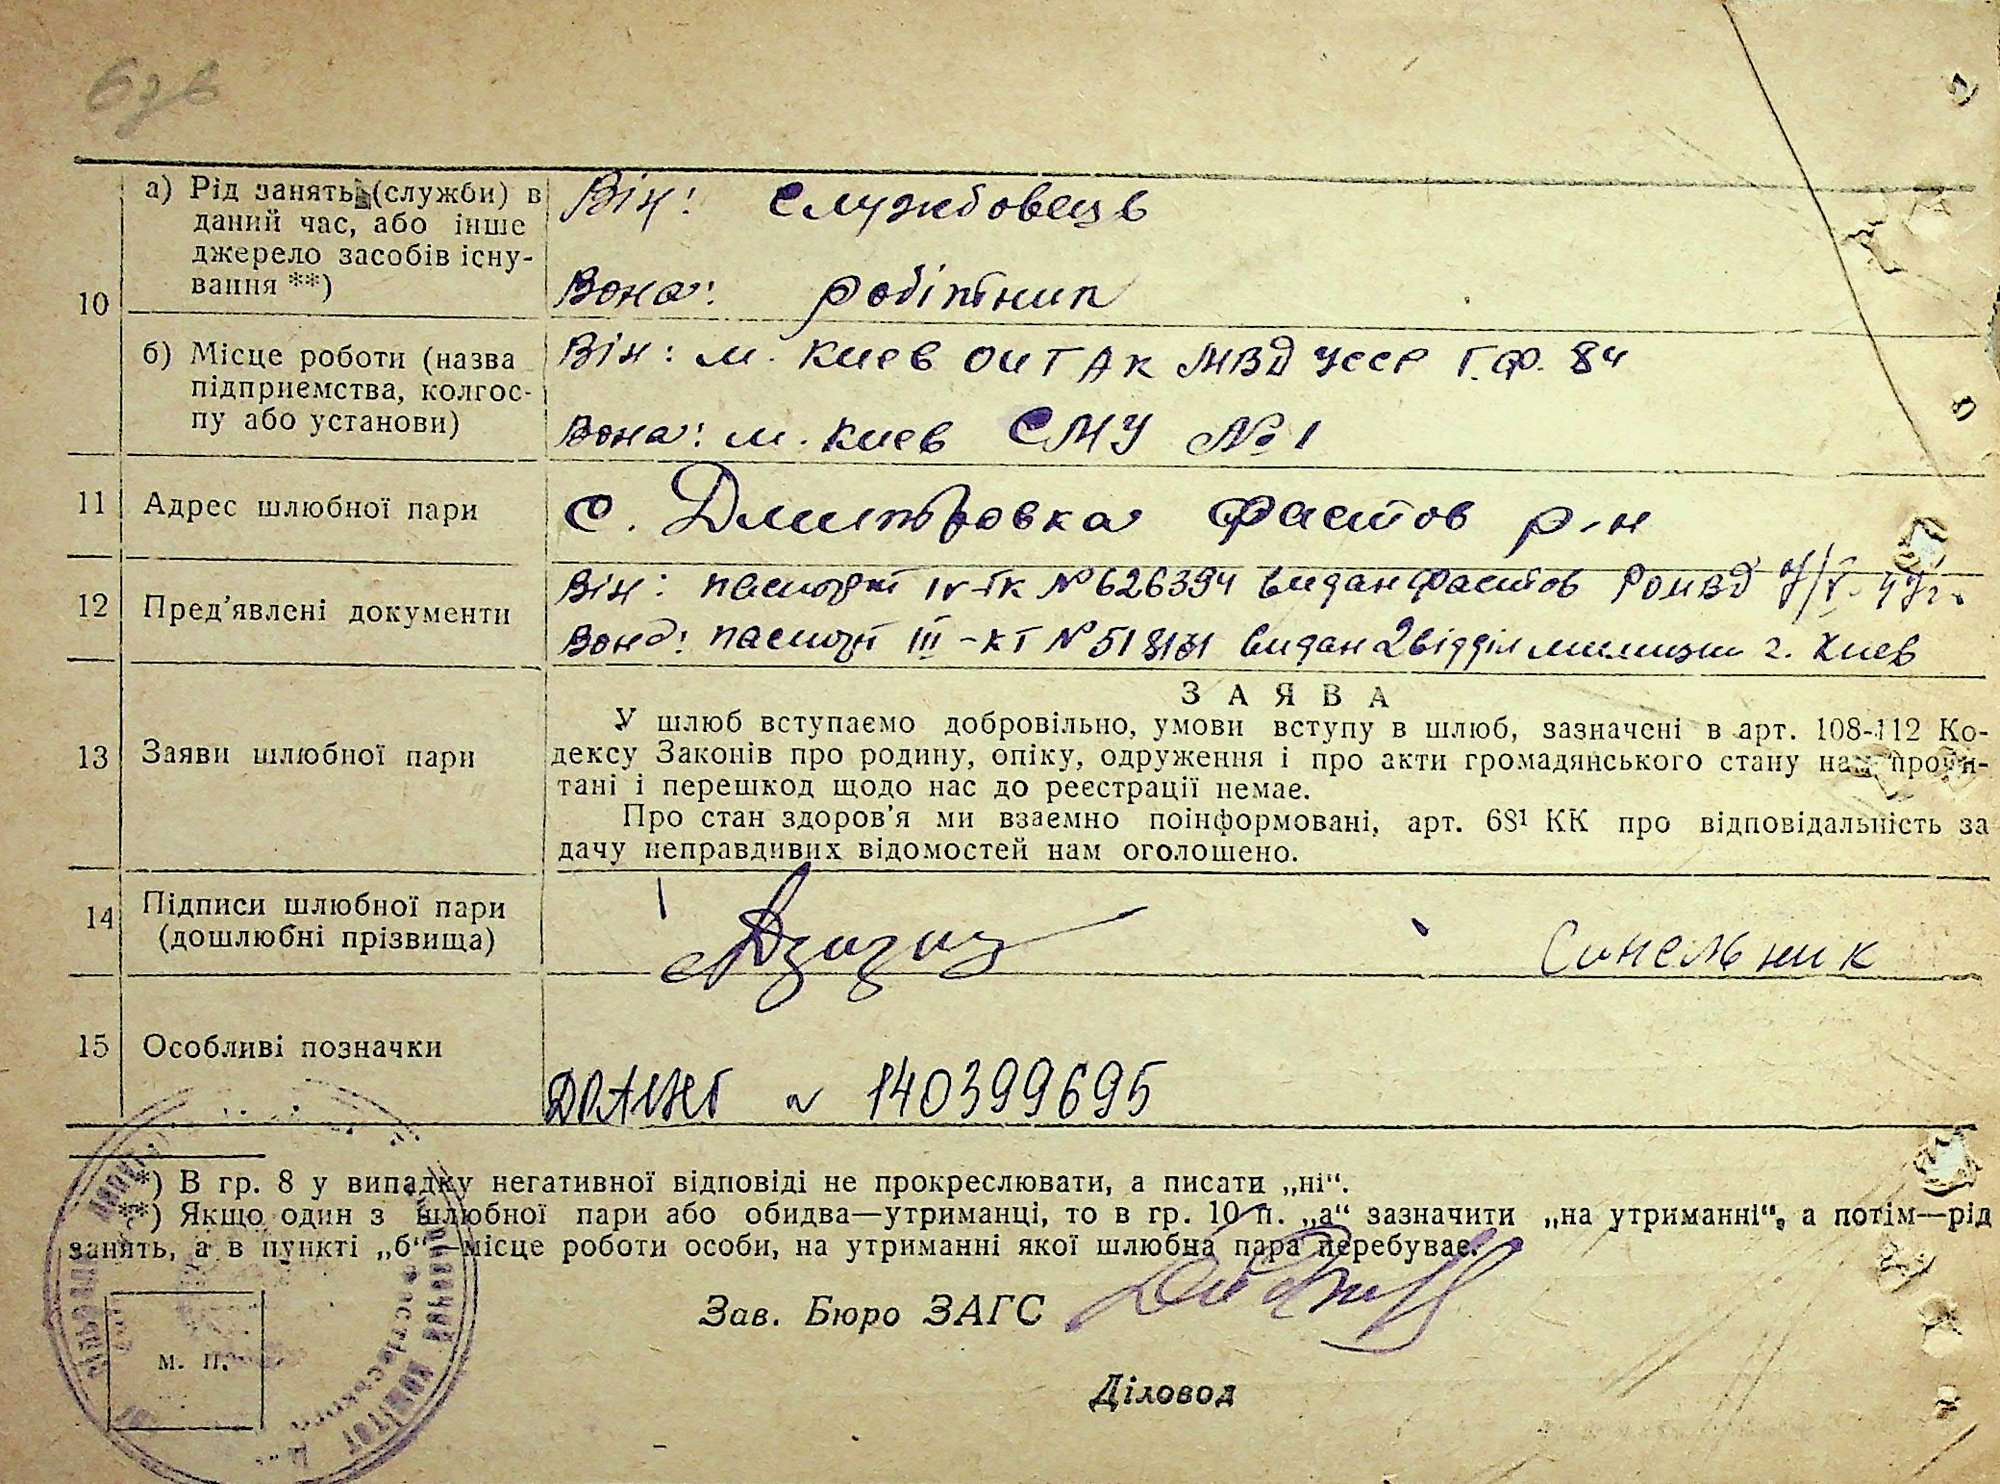 а) Рід занять (служби) в
даний час, або інше
джерело засобів існу-
вання **)
Він: службовець
Вона: робітниц
10
б) Місце роботи (назва
підприємства, колгос-
пу або установи)
Він: м. Киев ОИТАК МВД УССР Г.Ф. 84
Вона: м. Киев СМУ № 1
11 Адрес шлюбної пари
с. Дмитровка Фастов р-н
12 Пред'явлені документи
Він: паспорт IV-ТК № 626394 видан Фастов РОМВД
Вона: паспорт III-КТ № видан 2 відділ милиции г. Киев
13 Заяви шлюбної пари
ЗАЯВА
У шлюб вступаємо добровільно, умови вступу в шлюб, зазначені в арт. 108-112 Ко-
дексу Законів про родину, опіку, одруження і про акти громадянського стану нам прочи-
тані і перешкод щодо нас до реєстрації немає.
Про стан здоров'я ми взаємно поінформовані, арт. 68¹ КК про відповідальність за
дачу неправдивих відомостей нам оголошено.
14 Підписи шлюбної пари
(дошлюбні прізвища)
Синельник
15 Особливі позначки
140399695
*) В гр. 8 у випадку негативної відповіді не прокреслювати, а писати „ні“.
**) Якщо один з шлюбної пари або обидва—утриманці, то в гр. 10 п. „а“ зазначити „на утриманні“, а потім—рід
занять, а в пункті „б“—місце роботи особи, на утриманні якої шлюбна пара перебуває.
Зав. Бюро ЗАГС
м. п.
Діловод